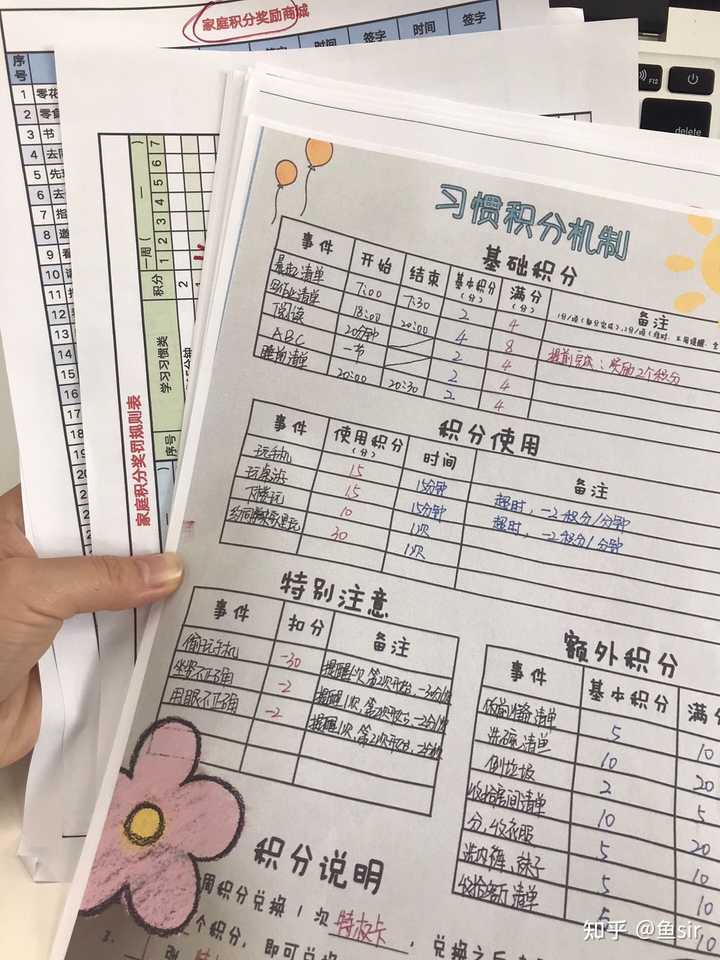 家庭积分奖励商城
签字 时间 签字
序号
1 零花
2 零食
3 书
4 去
5
6 去
7 指
8 邀
9 看
10
11
12
13
14
15
16
17
18
19
家庭积分奖罚规则表
序号 学习习惯奖 积分 一周( 一 )
1 2 3 4 5 6 7
F12
delete
习惯积分机制
基础积分
事件 开始 结束 基本积分(分) 满分(分) 备注
晨起清单 7:00 7:30 2 4
作业清单 18:00 20:00 4 8 提前完成:奖励2个积分
阅读 20分钟 2 4
ABC 一节 2 4
睡前清单 20:00 20:30 2 4
积分使用
事件 使用积分(分) 时间 备注
玩手机 15 15分钟 超时,-2积分/1分钟
玩桌游 15 15分钟 超时,-2积分/1分钟
下楼玩 10 1次
30 1次
特别注意
事件 扣分 备注
偷玩手机 -30 提醒1次,第2次开始,-30分/次
坐姿不正确 -2 提醒1次,第2次开始,-2分/次
用眼不正确 -2 提醒1次,第2次开始,-2分/次
额外积分
事件 基本积分 满分
清单 5 10
洗碗清单 10 20
倒垃圾 2 5
收拾房间清单 10 20
分、收衣服 5 10
洗内裤、袜子 5 10
清单 5 10
积分说明
周积分兑换1次特权卡,兑换之后
3. 个积分,即可兑换
知乎 @鱼sir